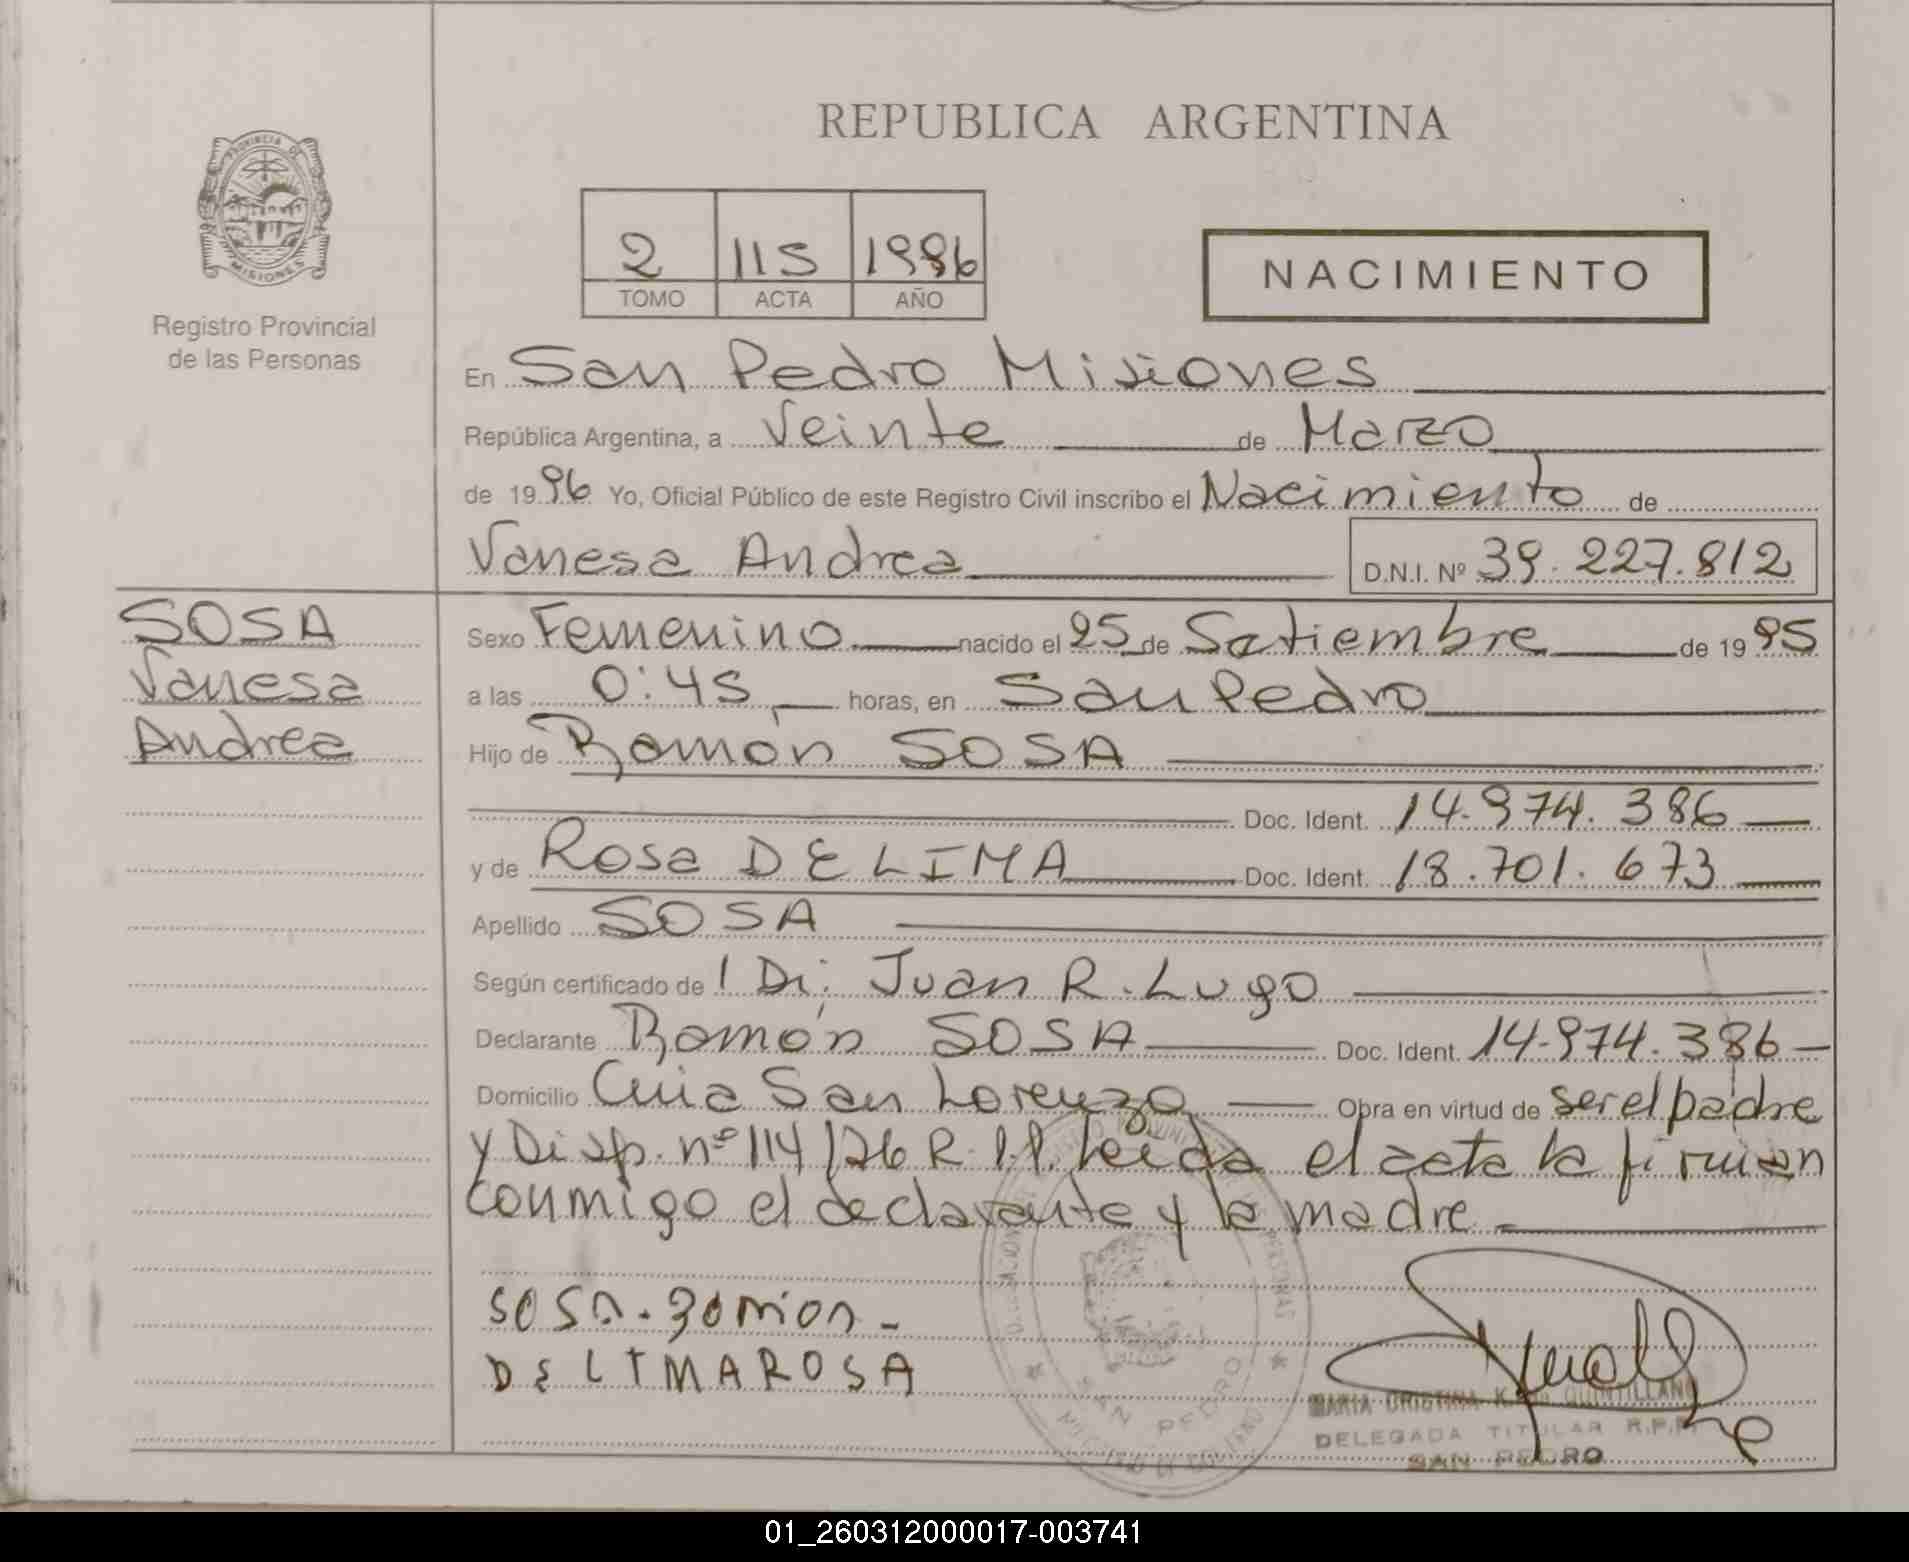 REPUBLICA ARGENTINA
PROVINCIA DE
MISIONES
Registro Provincial
de las Personas
2 115 1996
TOMO ACTA AÑO
NACIMIENTO
En San Pedro Misiones
República Argentina, a Veinte de Marzo
de 1996 Yo, Oficial Público de este Registro Civil inscribo el Nacimiento de
Vanesa Andrea D.N.I. Nº 39.227.812
SOSA
Vanesa
Andrea
Sexo Femenino nacido el 25 de Setiembre de 1995
a las 0:45 horas, en San Pedro
Hijo de Ramón SOSA
Doc. Ident. 14.974.386
y de Rosa DE LIMA Doc. Ident. 18.701.673
Apellido SOSA
Según certificado de Juan R. Lugo
Declarante Ramón SOSA Doc. Ident. 14.974.386
Domicilio San Lorenzo Obra en virtud de ser el padre
y Disp. nº 114/ R.P.P. Leída el acta la firman
conmigo el declarante y la madre
SOSA. ramon
DE LIMA ROSA
SAN PEDRO
MARIA CRISTINA K. QUINTILLANO
DELEGADA TITULAR R.P.P.
SAN PEDRO
01_260312000017-003741